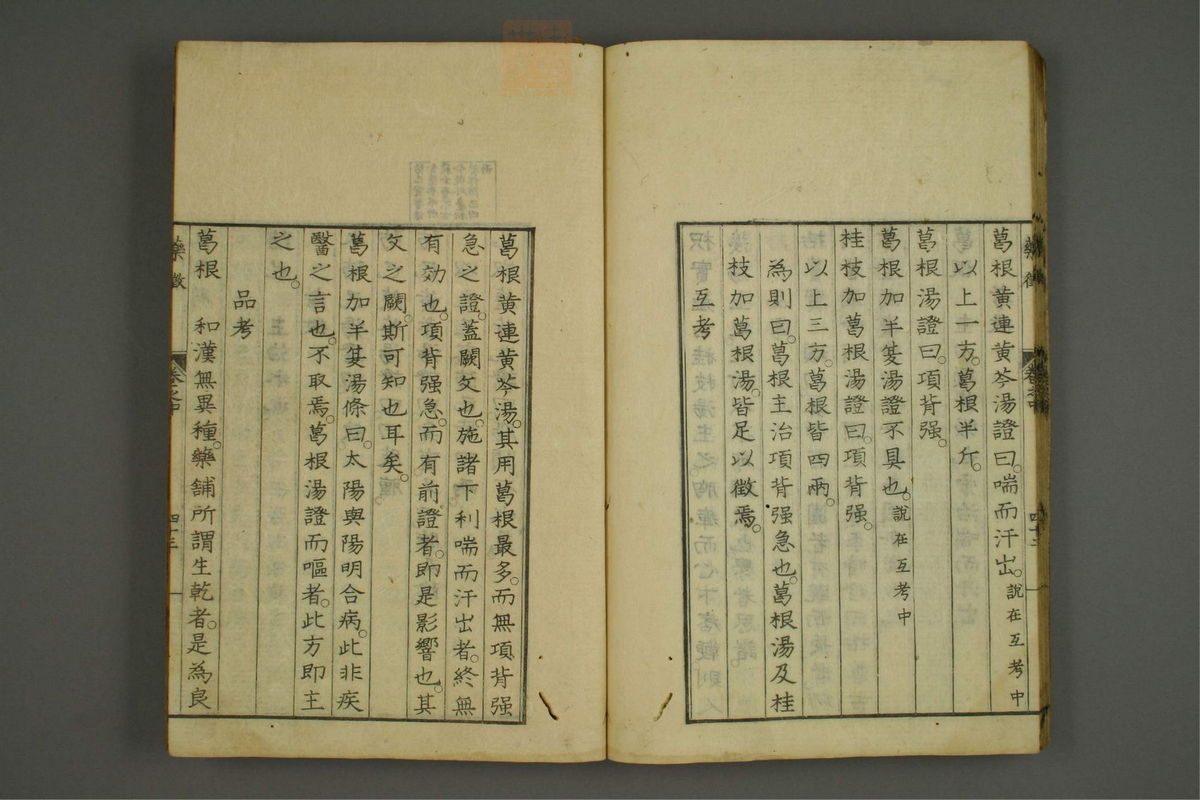 葛根黄連黄芩湯證曰。喘而汗出。説在互考中
以上一方。葛根半斤。
葛根湯證曰。項背强。
葛根加半夏湯證不具也。説在互考中
桂枝加葛根湯證曰。項背强。
以上三方。葛根皆四兩。
為則曰。葛根主治項背强急也。葛根湯及桂
枝加葛根湯。皆足以徴焉。
互考
葛根黄連黄芩湯。其用葛根最多。而無項背强
急之證。蓋闕文也。施諸下利喘而汗出者。終無
有効也。項背强急。而有前證者。即是影響也。其
文之闕。斯可知也耳矣。
葛根加半夏湯條曰。太陽與陽明合病。此非疾
醫之言也。不取焉。葛根湯證而嘔者。此方即主
之也。
品考
葛根 和漢無異種。藥舖所謂生乾者。是為良
藥徴
卷之中
四十三